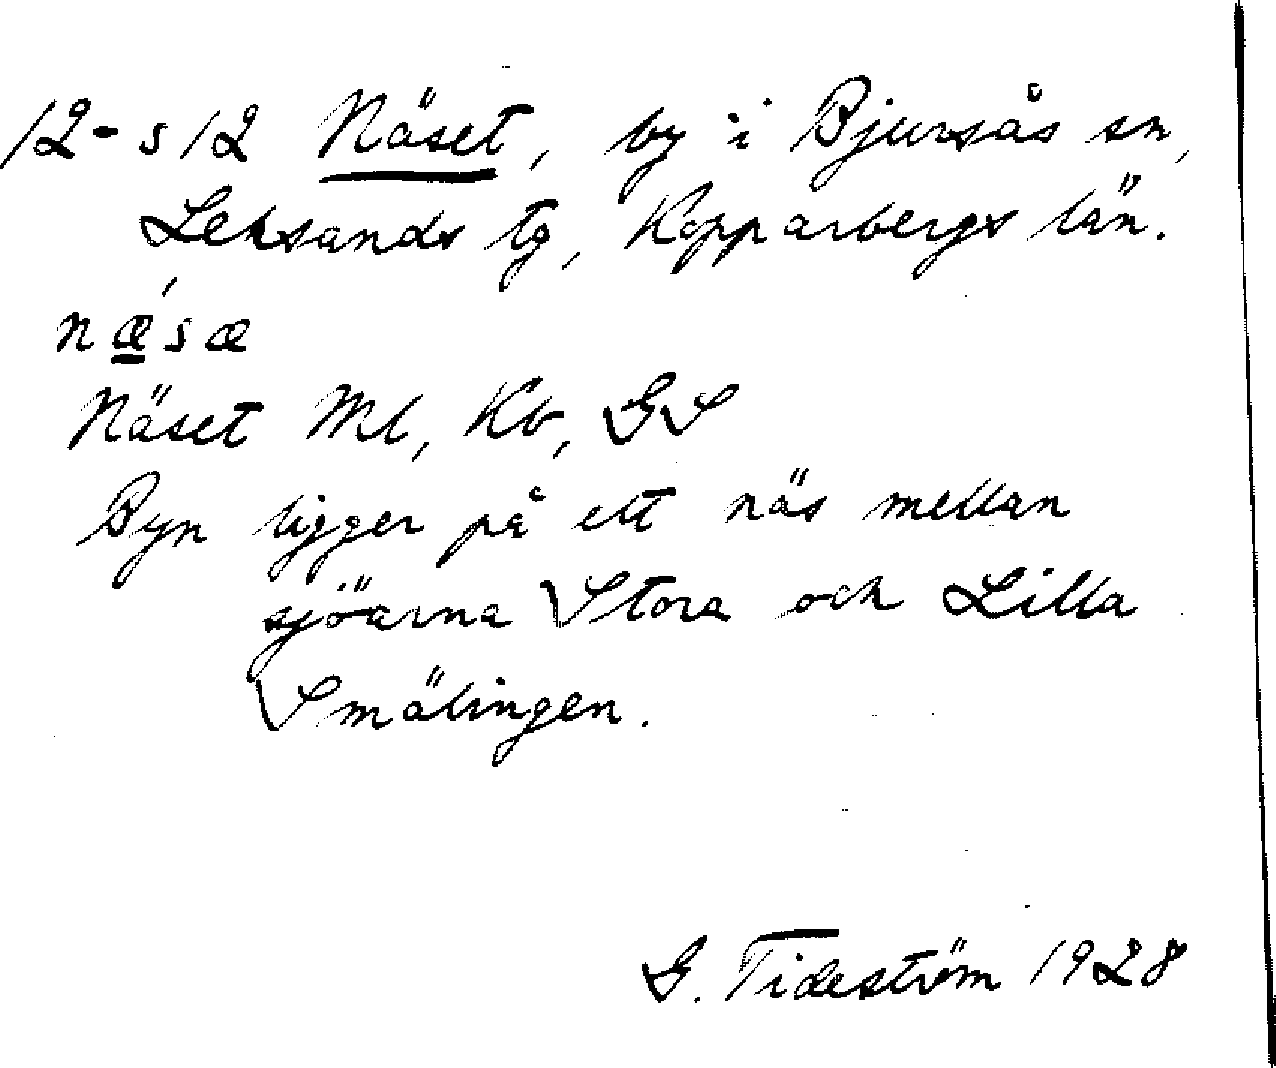 12-s12 Näset, by i Bjursås sn,
Leksands tg, Kopparbergs län.
nǽsæ
Näset Ml, Kb, GS
Byn ligger på ett näs mellan
sjöarna Stora och Lilla
Smälingen.
G. Tideström 1928